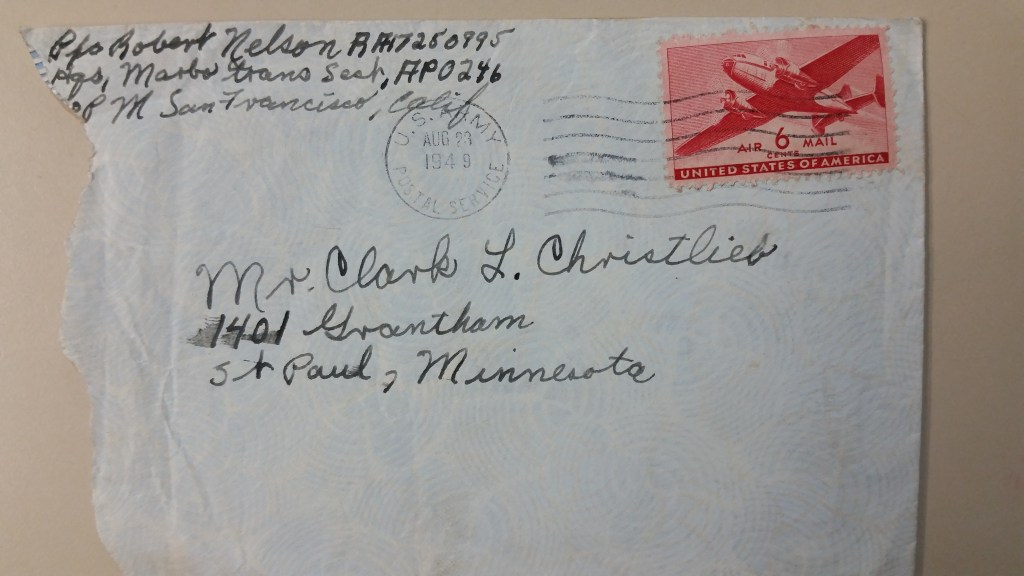 Pfc Robert Nelson RA17250995
Hqs, Marbo Trans Sect, APO 246
PM San Francisco, Calif
U.S. ARMY
AUG 23
1949
POSTAL SERVICE
AIR 6 MAIL
CENTS
UNITED STATES OF AMERICA
Mr. Clark L. Christlieb
1401 Grantham
St Paul, Minnesota